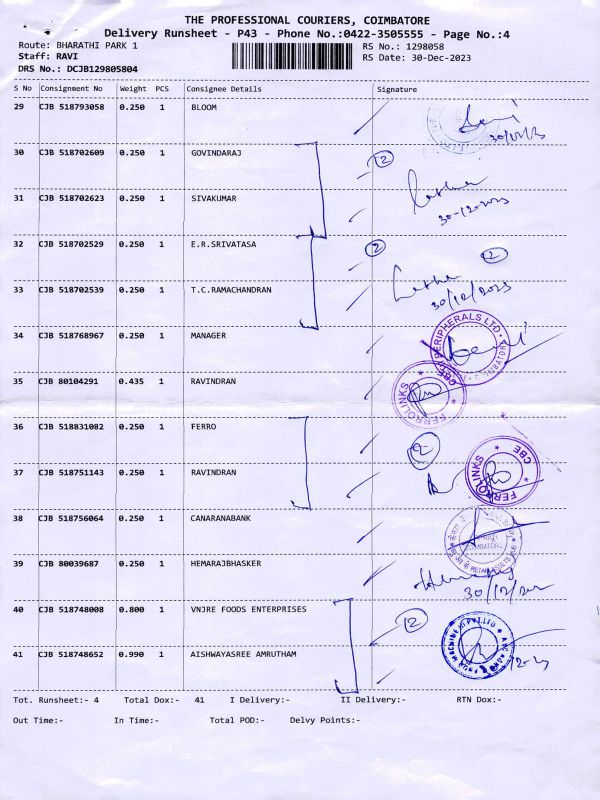 THE PROFESSIONAL COURIERS, COIMBATORE
Delivery Runsheet - P43 - Phone No.:0422-3505555 - Page No.:4
Route: BHARATHI PARK 1 RS No.: 1298058
Staff: RAVI RS Date: 30-Dec-2023
DRS No.: DCJB129805804
S No Consignment No Weight PCS Consignee Details Signature
29 CJB 518793058 0.250 1 BLOOM
30 CJB 518702609 0.250 1 GOVINDARAJ 2
31 CJB 518702623 0.250 1 SIVAKUMAR
30-12-2023
32 CJB 518702529 0.250 1 E.R.SRIVATASA 2 2
33 CJB 518702539 0.250 1 T.C.RAMACHANDRAN
30/12/2023
34 CJB 518768967 0.250 1 MANAGER
PERIPHERALS LTD.
35 CJB 80104291 0.435 1 RAVINDRAN
FERROLINKS CBE
36 CJB 518831082 0.250 1 FERRO 2
37 CJB 518751143 0.250 1 RAVINDRAN
FERROLINKS CBE
38 CJB 518756064 0.250 1 CANARANABANK
COIMBATORE
39 CJB 80039687 0.250 1 HEMARAJBHASKER
40 CJB 518748008 0.800 1 VNJRE FOODS ENTERPRISES 2
41 CJB 518748652 0.990 1 AISHWAYASREE AMRUTHAM
Tot. Runsheet:- 4 Total Dox:- 41 I Delivery:- II Delivery:- RTN Dox:-
Out Time:- In Time:- Total POD:- Delvy Points:-